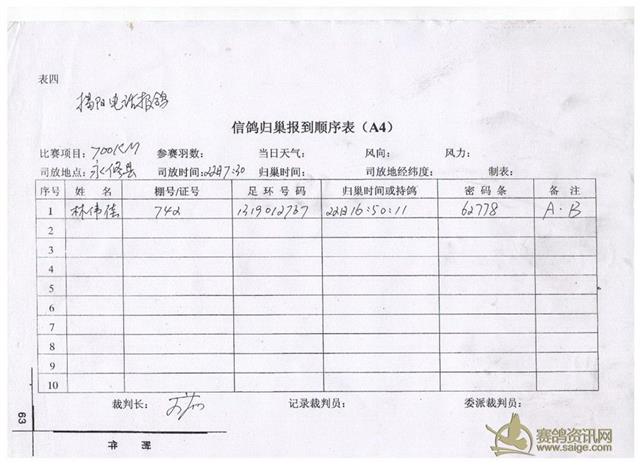 表四
揭阳电话报鸽
信鸽归巢报到顺序表（A4）
比赛项目：700KM 参赛羽数： 当日天气： 风向： 风力：
司放地点：永修县 司放时间：22日7:30 归巢时间： 司放地经纬度： 制表：
序号 姓 名 棚号/证号 足 环 号 码 归巢时间或持鸽 密 码 条 备 注
1 林伟佳 742 1319012737 22日16:50:11 62778 A·B
2
3
4
5
6
7
8
9
10
裁判长： 记录裁判员： 委派裁判员：
63
赛鸽资讯网
www.saige.com